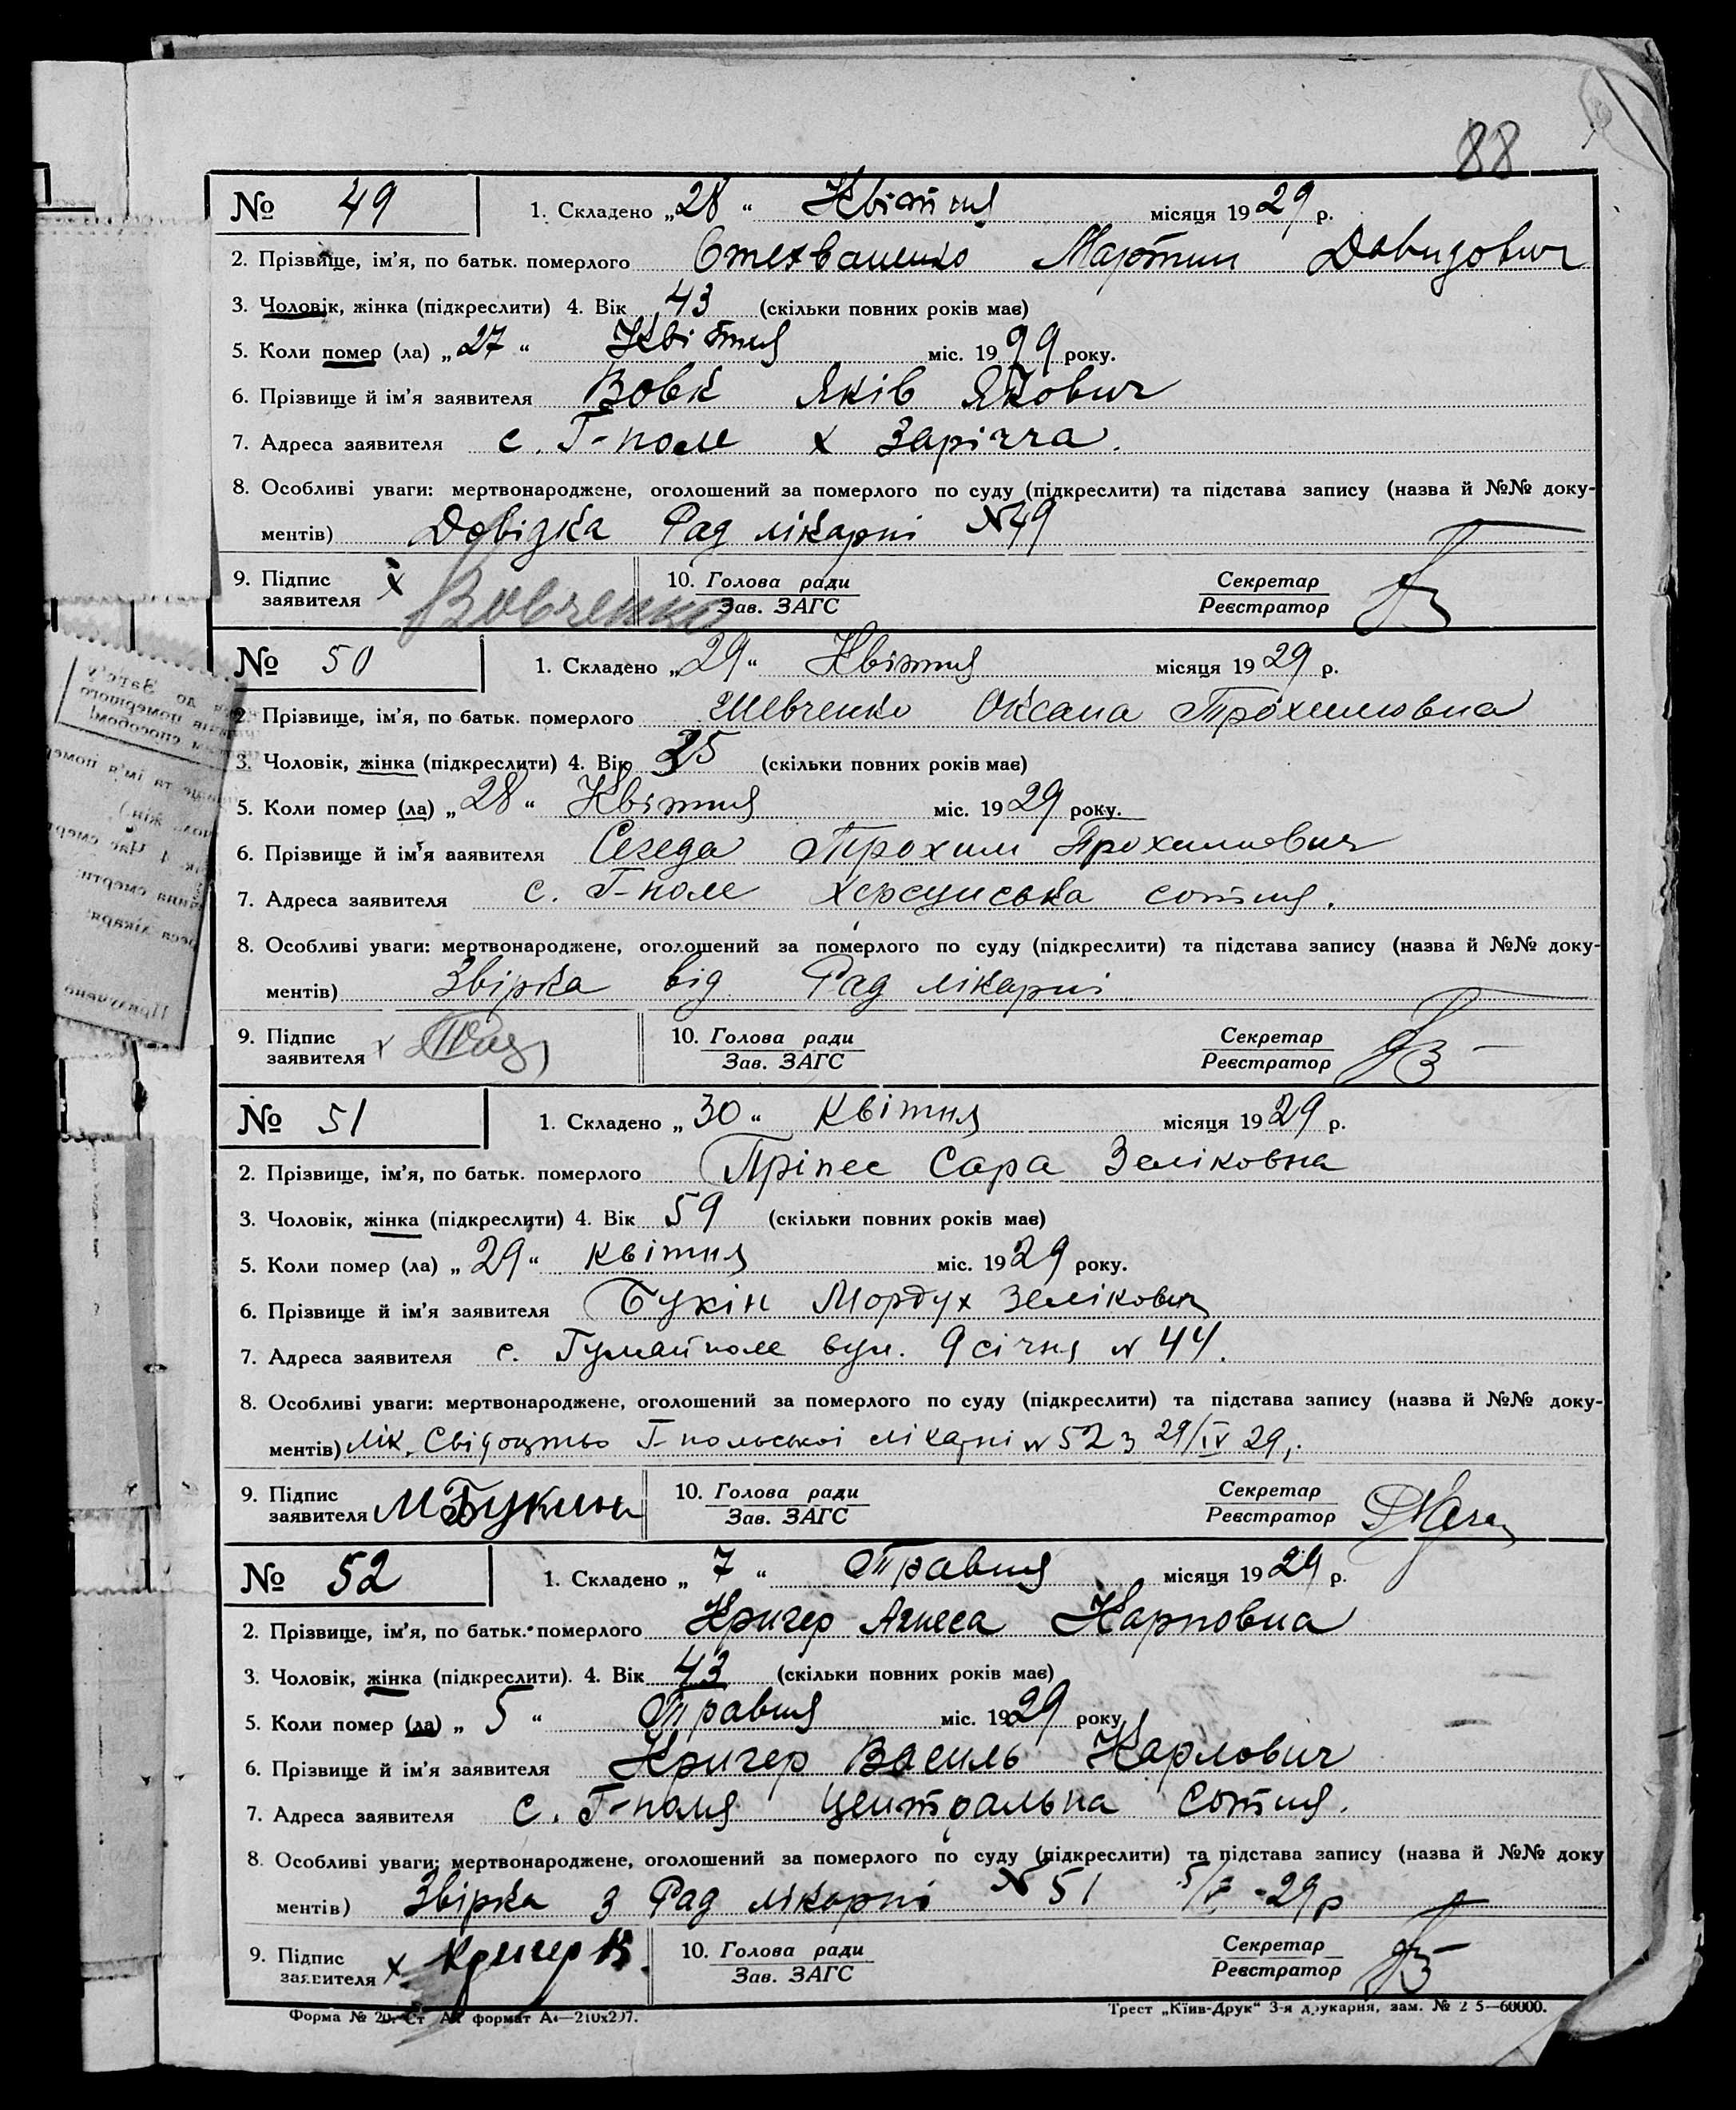 88
№ 49 1. Складено „28“ Квітня місяця 1929 р.
2. Прізвище, ім’я, по батьк. померлого Стехваненко Мартин Давидович
3. Чоловік, жінка (підкреслити) 4. Вік 43 (скільки повних років має)
5. Коли помер (ла) „27“ Квітня міс. 1929 року.
6. Прізвище й ім’я заявителя Вовк Яків Якович
7. Адреса заявителя с. Г-поле х Зарічча.
8. Особливі уваги: мертвонароджене, оголошений за померлого по суду (підкреслити) та підстава запису (назва й №№ доку-
ментів) Довідка Рад лікарні №49
9. Підпис заявителя х Вовченко 10. Голова ради Зав. ЗАГС Секретар Реєстратор
№ 50 1. Складено „29“ Квітня місяця 1929 р.
2. Прізвище, ім’я, по батьк. померлого Шевченко Оксана Трохимовна
3. Чоловік, жінка (підкреслити) 4. Вік 35 (скільки повних років має)
5. Коли помер (ла) „28“ Квітня міс. 1929 року.
6. Прізвище й ім’я заявителя Середа Трохим Трохимович
7. Адреса заявителя с. Г-поле Херсунська сотня.
8. Особливі уваги: мертвонароджене, оголошений за померлого по суду (підкреслити) та підстава запису (назва й №№ доку-
ментів) Звірка від Рад лікарні
9. Підпис заявителя х 10. Голова ради Зав. ЗАГС Секретар Реєстратор
№ 51 1. Складено „30“ квітня місяця 1929 р.
2. Прізвище, ім’я, по батьк. померлого Пріпес Сара Зеліковна
3. Чоловік, жінка (підкреслити) 4. Вік 59 (скільки повних років має)
5. Коли помер (ла) „29“ квітня міс. 1929 року.
6. Прізвище й ім’я заявителя Букін Мордух Зелікович
7. Адреса заявителя с. Гуляйполе вул. 9 січня № 44.
8. Особливі уваги: мертвонароджене, оголошений за померлого по суду (підкреслити) та підстава запису (назва й №№ доку-
ментів) лік. Свідоцтво Г-польської лікарні № 52 з 29/IV 29,.
9. Підпис заявителя М Букин 10. Голова ради Зав. ЗАГС Секретар Реєстратор
№ 52 1. Складено „7“ Травня місяця 1929 р.
2. Прізвище, ім’я, по батьк. померлого Кригер Агнеса Карповна
3. Чоловік, жінка (підкреслити). 4. Вік 43 (скільки повних років має)
5. Коли помер (ла) „5“ Травня міс. 1929 року
6. Прізвище й ім’я заявителя Кригер Василь Карлович
7. Адреса заявителя с. Г-поля Центральна Сотня.
8. Особливі уваги: мертвонароджене, оголошений за померлого по суду (підкреслити) та підстава запису (назва й №№ доку
ментів) Звірка з Рад лікарні № 51 5/V-29р
9. Підпис заявителя х Кригер В. 10. Голова ради Зав. ЗАГС Секретар Реєстратор
Форма № 20. Ст формат А4—210х297. Трест „Київ-Друк“ 3-я друкарня, зам. № 2 5—60000.